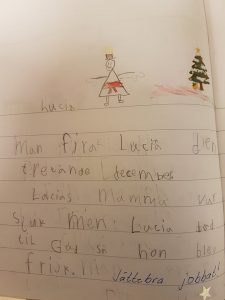 Lucia
man firar Lucia den
tretande december
Lucias Mamma var
sjuk men Lucia bad
til Gud så hon blev
frisk.
Jättebra jobbat!